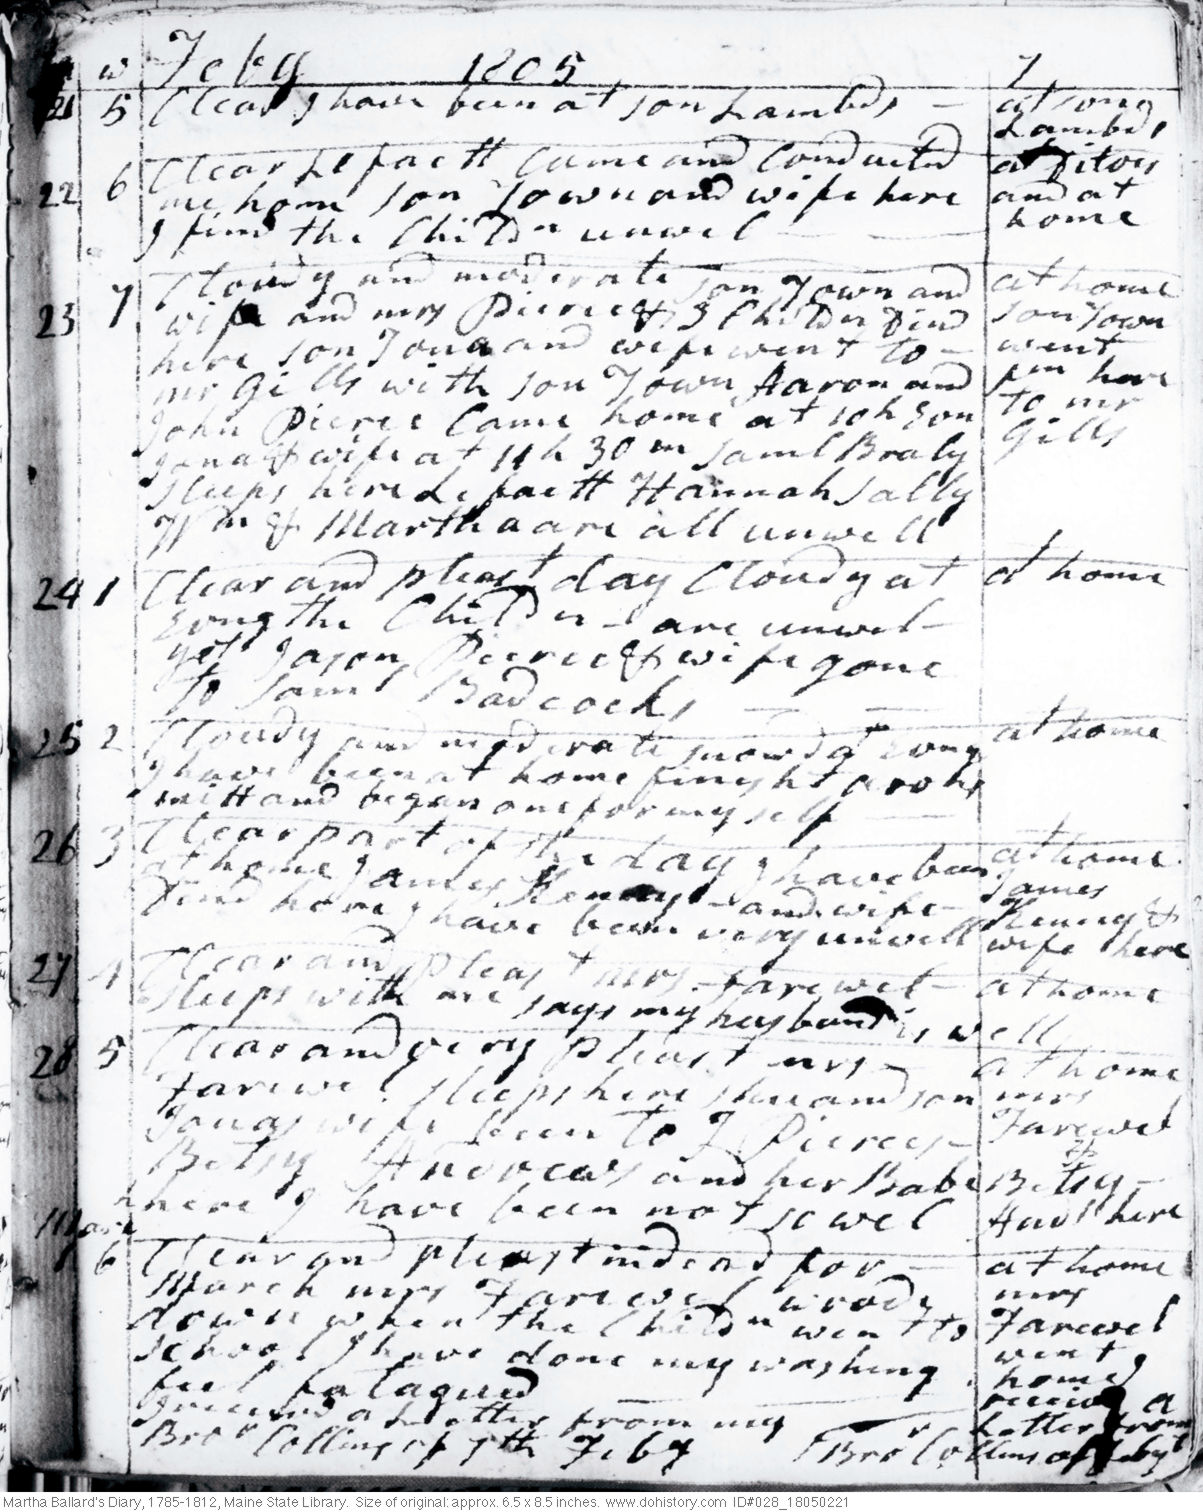 m w Feby 1805 7
21 5 Clear I have been at son Lambds – at sons
Lambds
22 6 Clear Lefaett Came and Conductd at Ditoes
me home son Town and wife here and at
I find the Childn unwel – home
23 7 Cloudy and moderate son Town and at home
wife and mrs Pierce & 3 Childn Dind son Town
here son Jona and wife went to – went
mr Gills with son Town Aaron and from here
John Pierce Came home at 10h son to mr
Jona & wife at 11h 30m Saml Braly Gills
sleeps here Lefaett Hannah Sally
Wm & Martha are all unwell
24 1 Clear and pleast day Cloudy at at home
Evng the Childn – are unwel –
yet Jason Pierce & wife gone
to Saml Badcocks
25 2 Cloudy and moderate snowd at Evng at home
I have been at home finisht a
mitt and began one for my self
26 3 Clear part of the day I have been at home
at home James Kenny – and wife – James
Dind here I have been very unwell Kenny &
wife here
27 4 Clear and pleast mrs Farewel – at home
sleeps with me says my husband is well
28 5 Clear and very pleast mrs – at home
Farewel sleeps here shee and son mrs
Jonas wife been to J Pierces – Farewel
Betsy Andrews and her Babe &
here I have been not so wel Betsy –
Andr here
March
1 6 Clear and pleast indead for – at home
March mrs Farewel wrode mrs
down when the Childn went to Farewel
school I have done my washing went
feel fatagued home I
I receivd a Letter from my receivd a
Bror Collins of 7th Feby Letter from
Bror Collins of Feby
Martha Ballard's Diary, 1785-1812, Maine State Library. Size of original: approx. 6.5 x 8.5 inches. www.dohistory.com ID#028_18050221